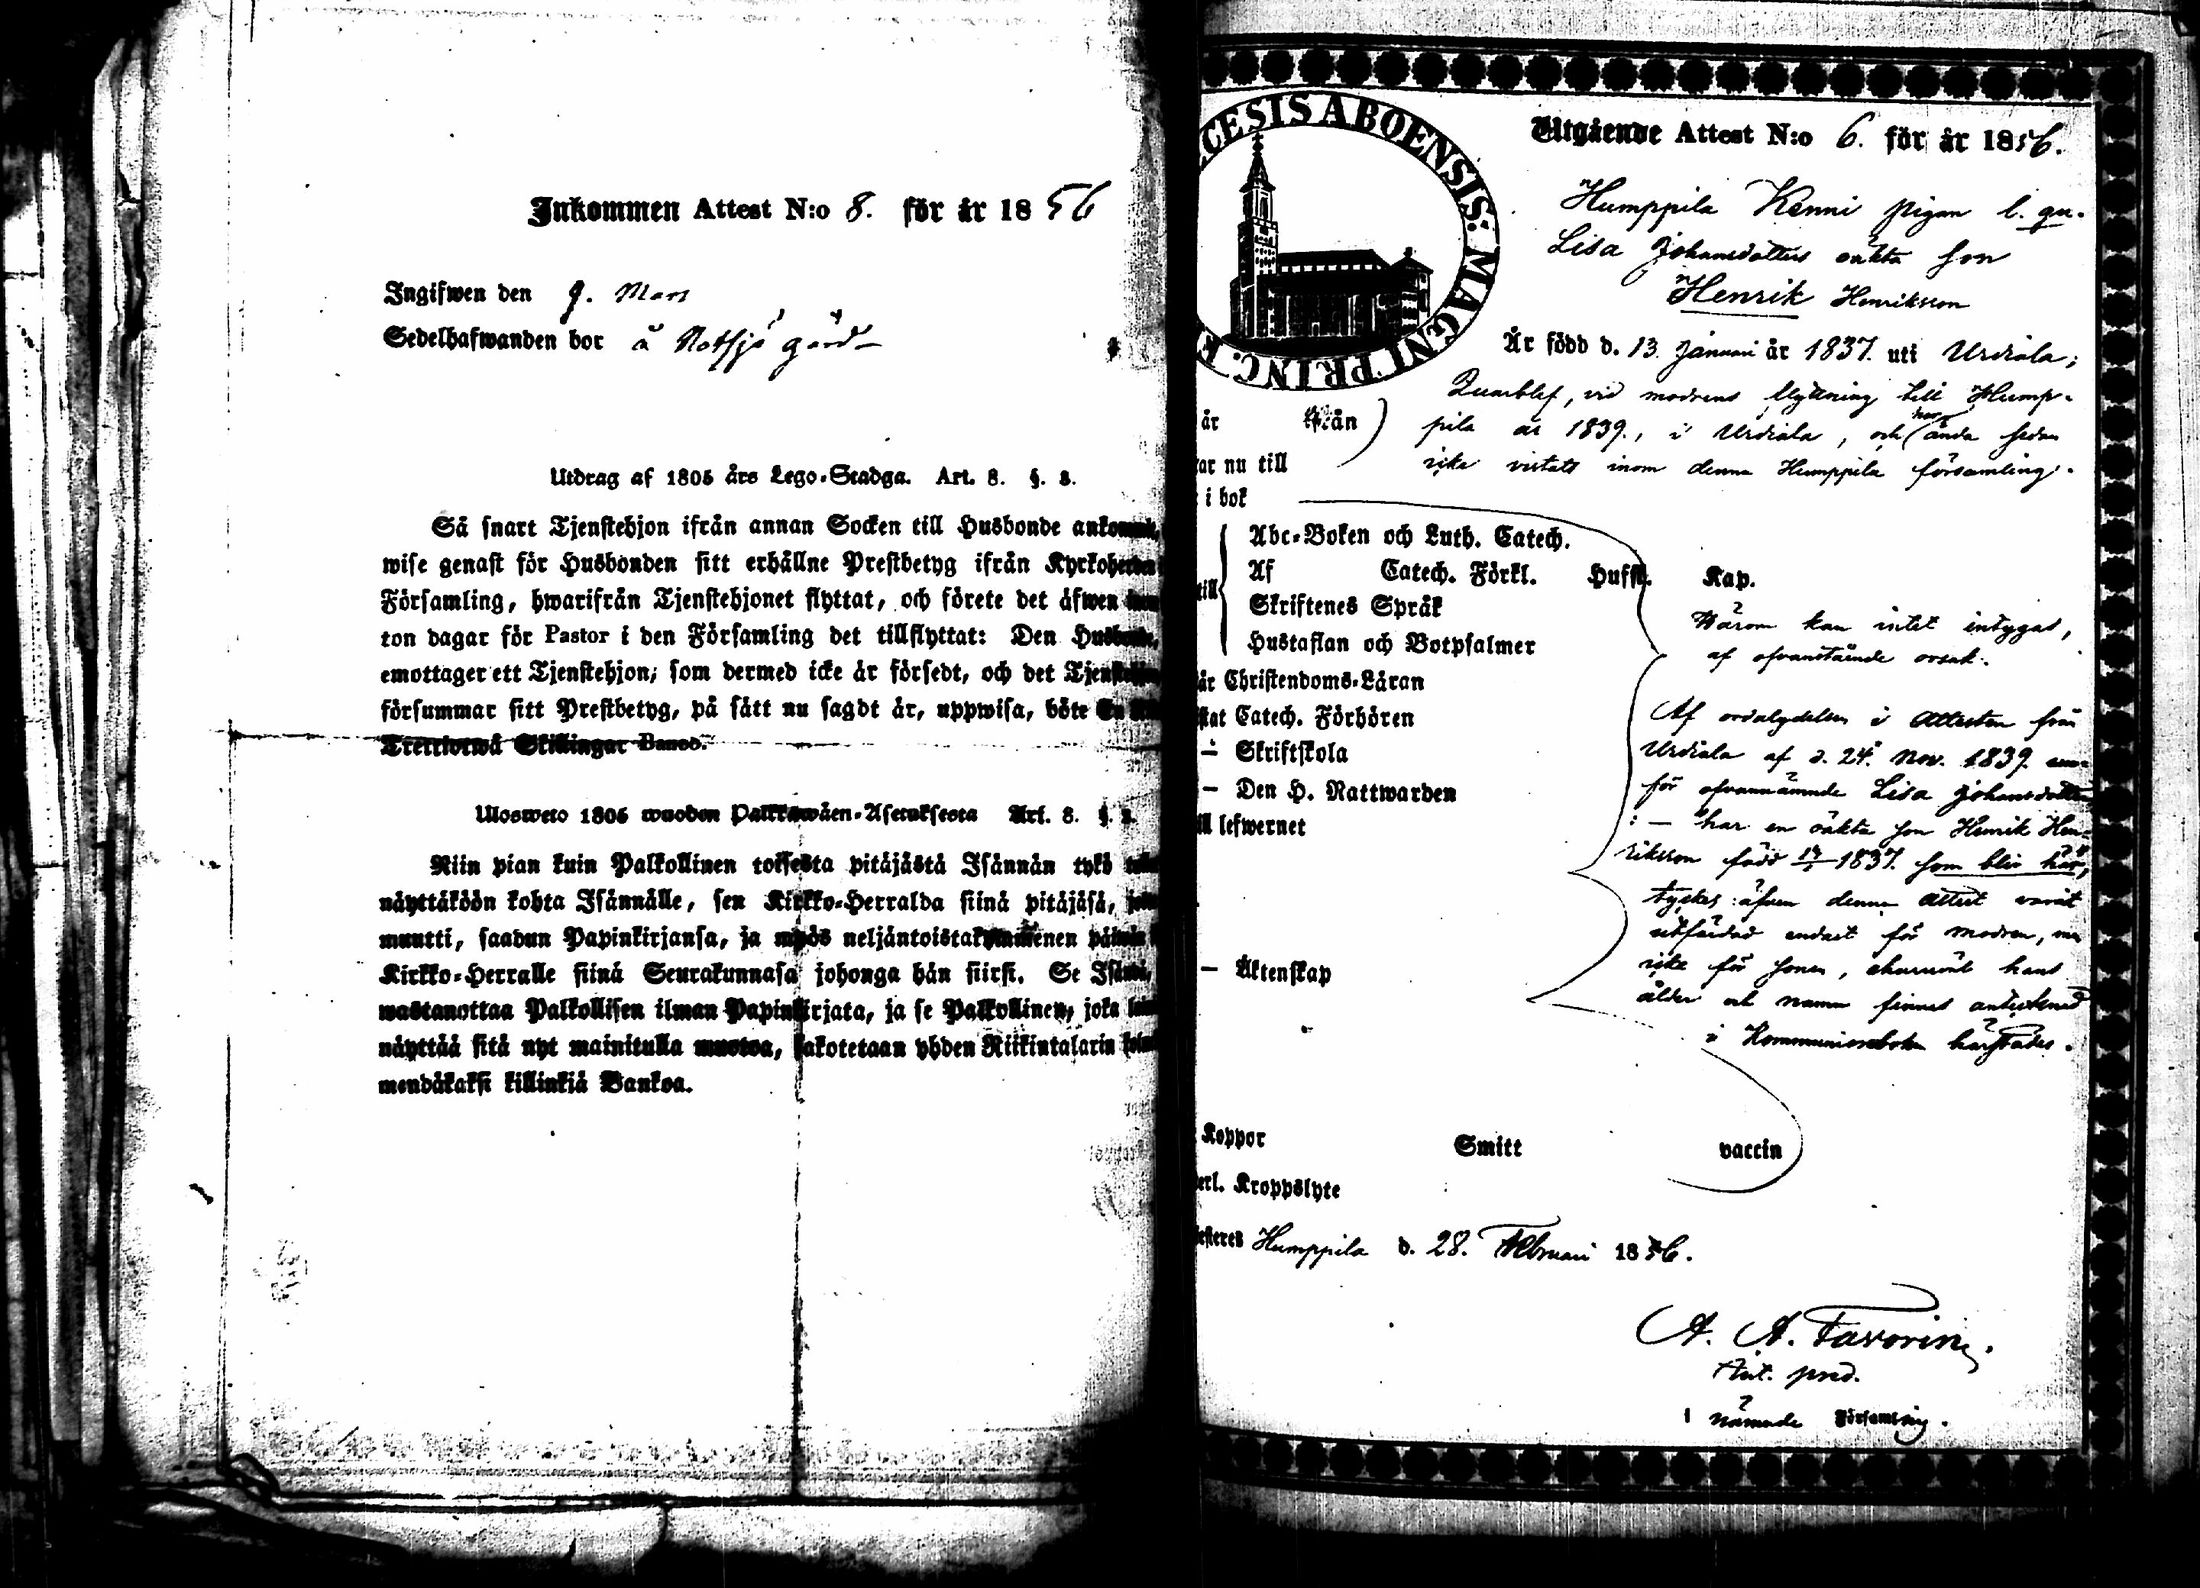 Inkommen Attest N:o 8. för år 1856
Ingifwen den 9. Mars
Sedelhafwanden bor å Notsjö gård
Utdrag af 1805 års Lego-Stadga. Art. 8. §. 2.
Så snart Tjenstehjon ifrån annan Socken till Husbonde
wise genast för Husbonden sitt erhållne Prestbetyg ifrån
Församling, hwarifrån Tjenstehjonet flyttat, och förete det äfwen
ton dagar för Pastor i den Församling det tillflyttat: Den
emottager ett Tjenstehjon, som dermed icke är försedt, och det
försummar sitt Prestbetyg, på sätt nu sagdt är, uppwisa, böte
Trettiotwå Skillingar Banco.
Ulosweto 1805 wuoden Palkkawäen-Asetuksesta Art. 8. §. 2.
Niin pian kuin Palkollinen toisesta pitäjästä Isännän tykö
näyttäköön kohta Isännälle, sen Kirkko-Herralda siinä pitäjäsä,
muutti, saadun Papinkirjansa, ja myös neljäntoistakymmenen
Kirkko-Herralle siinä Seurakunnasa johonga hän siirsi. Se
wastanottaa Palkollisen ilman Papinkirjata, ja se Palkollinen, joka
näyttää sitä nyt mainitulla muotoa, sakotetaan yhden Riikintalarin
mendäkaksi killinkiä Bankoa.
CESIS ABOENSIS: MAGNI PRINC. F
Utgående Attest N:o 6. för år 1856.
Humppila Kenni pigan l. qu.
Lisa Johansdotters oäkta son
Henrik Henriksson
Är född d. 13. Januari år 1837. uti Urdiala;
Quarblef, vid modrens flyttning till Hump-
år från
pila år 1839., i Urdiala, och har ända sedan
ar nu till
icke vistats inom denna Humppila församling.
i bok
Abc-Boken och Luth. Catech.
Af Catech. Förkl. Hufst. Kap.
till
Skriftenes Språk
Hwarom kan intet intygas,
Hustaflan och Botpsalmer
af ofvanstående orsak.
är Christendoms-Läran
Af ordalydelsen i Attesten från
stat Catech. Förhören
Urdiala af d. 24. Nov. 1839.
– Skriftskola
för ofvannämnde Lisa Johansdotter
– Den H. Nattwarden
: – har en oäkta son Henrik Hen-
ll lefwernet
riksson född 13/1 1837. som blir här,
tyckes äfven denna Attest varit
utfärdad endast för modren,
icke för sonen, ehuruväl hans
– Äktenskap
ålder och namn finnes antecknad
i Kommunionboken härstädes.
Koppor Smitt vaccin
erl. Kroppslyte
esteres Humppila d. 28. Februari 1856.
A. A. Favorin.
i nämnde Församling.